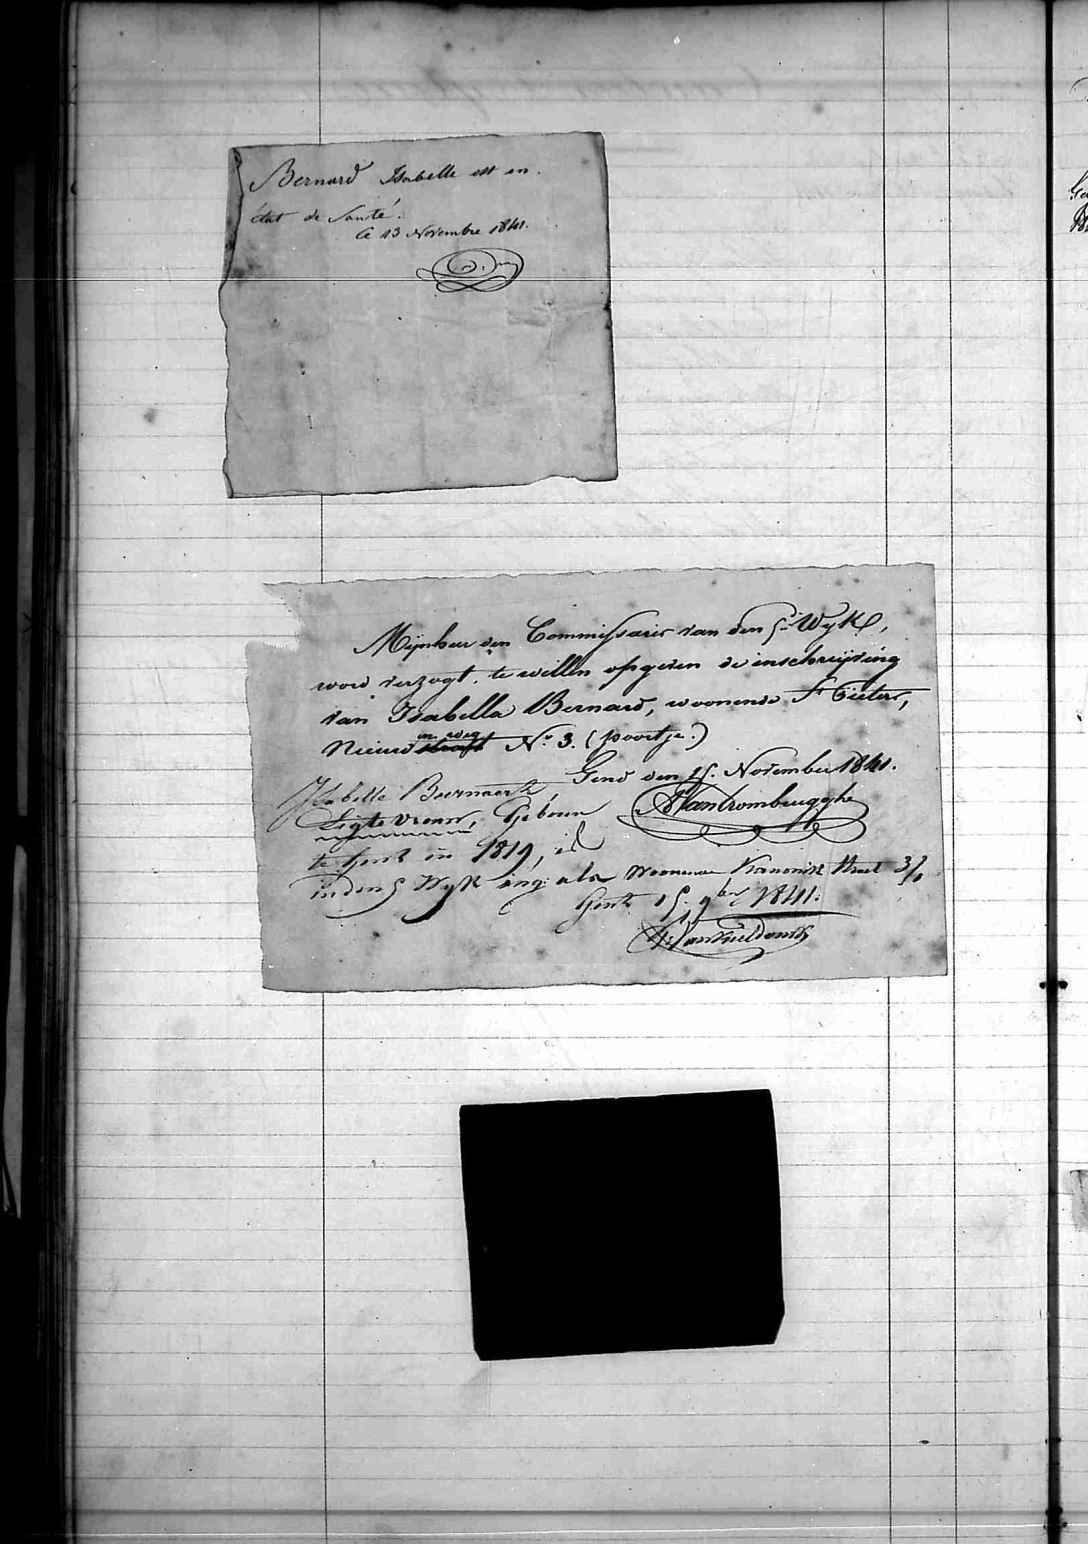 Bernard Isabelle est en
état de Santé.
Ce 13 Novembre 1841.
Mijnheer den Commissaris van den 5e Wyk,
word verzogt te willen opgeven de inschrijving
van Isabella Bernard, woonende St Pieters,
Nieuw straet en weg No 3. (poortje.)
Gend den 15. November 1841.
Isabelle Beernaert,
Ligte vrouw, Geboren
te Gent in 1819, is
in den 5 Wyk ing. als Woonende Kanonik Straet 3/
Gent 15. 9ber 1841.